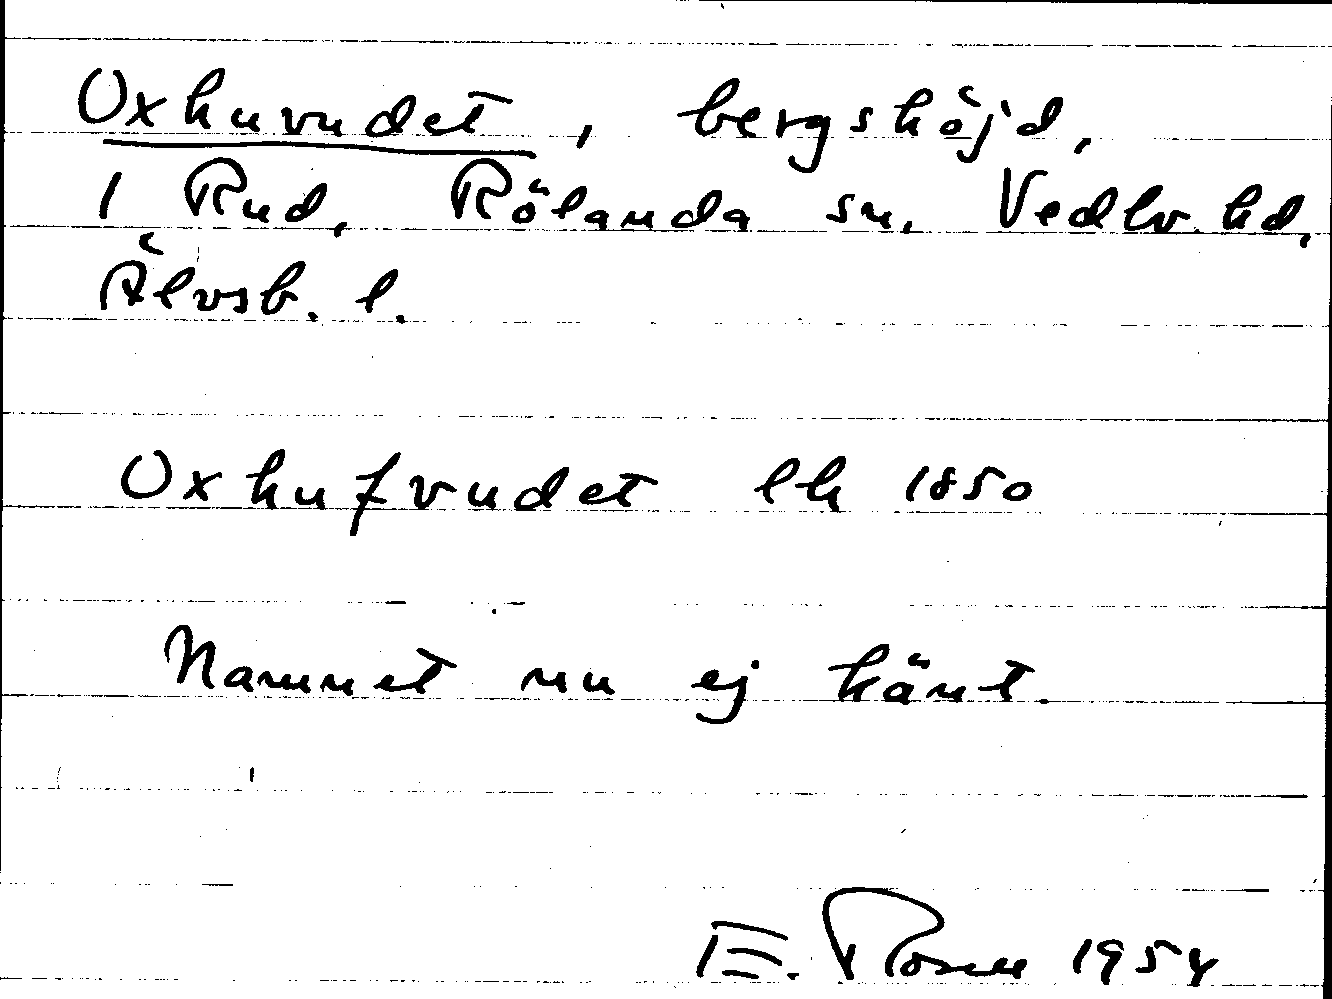 Oxhuvudet, bergshöjd,
1 Rud, Rölanda sn. Vedbo hd,
Älvsb. l.
Oxhufvudet lh 1850
Namnet nu ej känt.
E. Rosell 1954